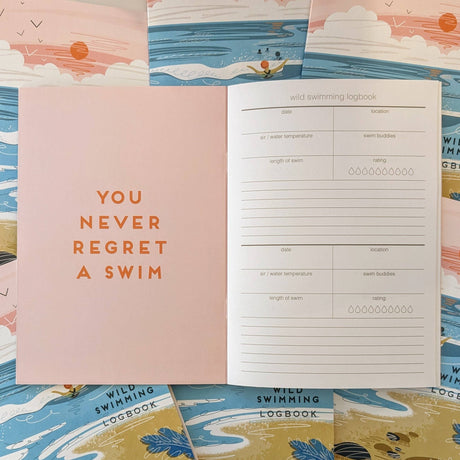 YOU
NEVER
REGRET
A SWIM
wild swimming logbook
date location
air / water temperature swim buddies
length of swim rating
date location
air / water temperature swim buddies
length of swim rating
WILD
SWIMMING
LOGBOOK
WILD
SWIMMING
LOGBOOK
WILD
SWIMMING
LOGBOOK